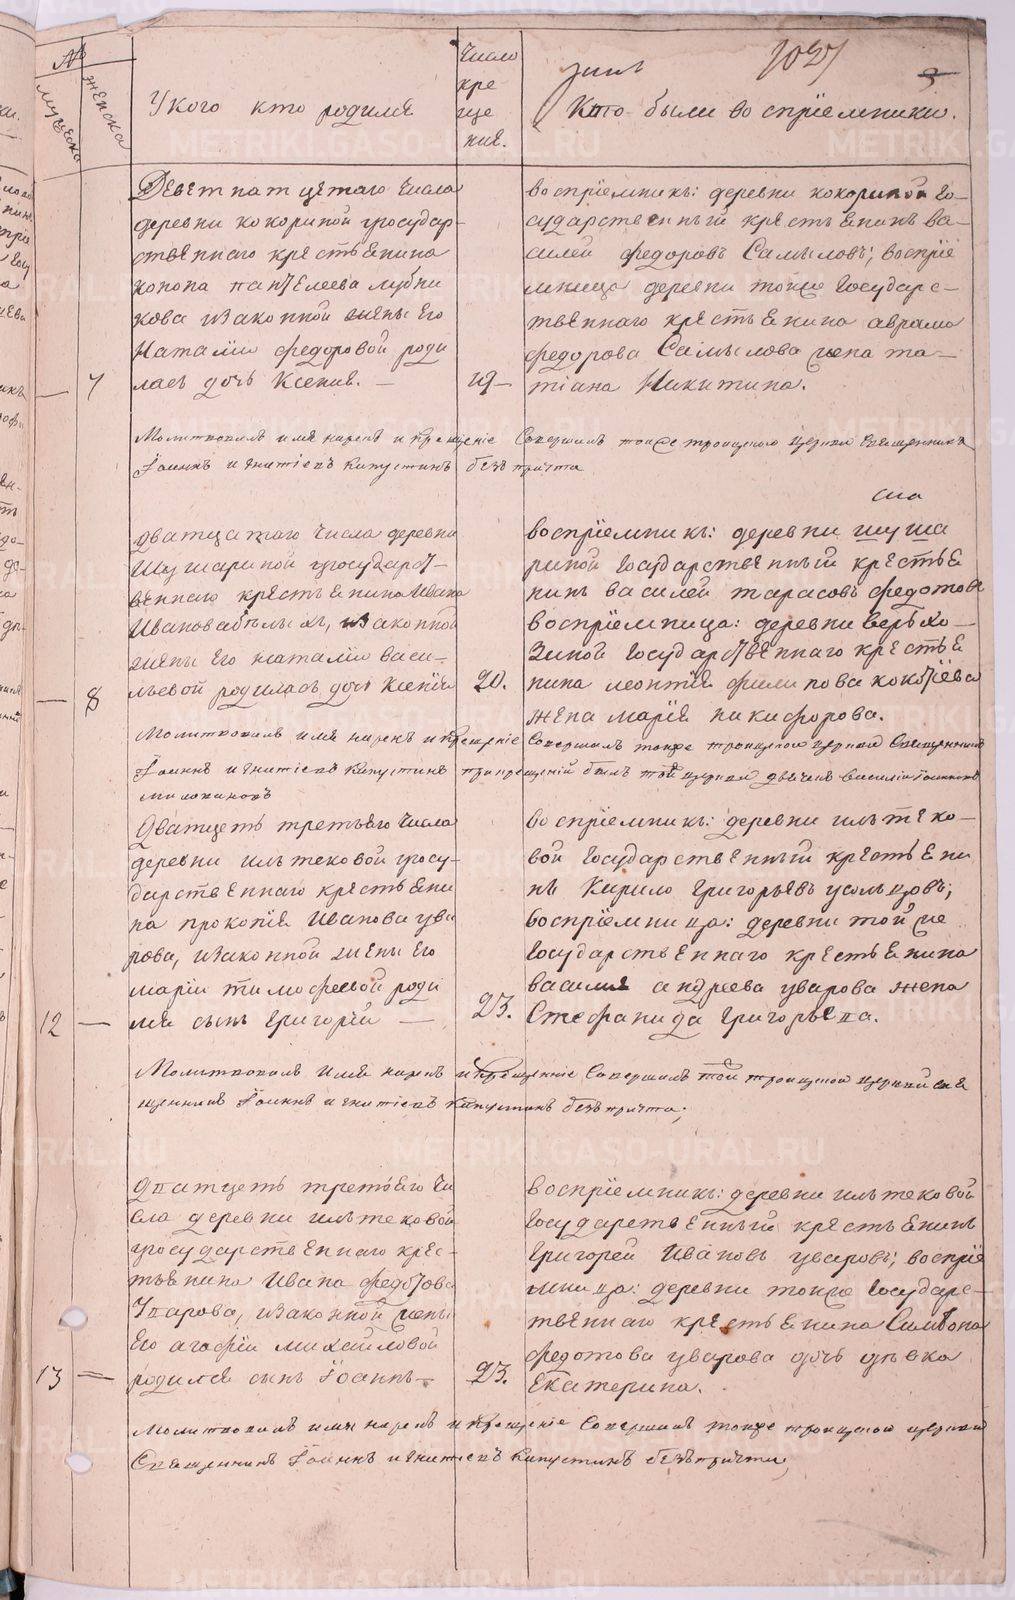 №
мужеска
женска
У кого кто родился
Число
кре
ще
ния.
1027
3
Кто были восприемники.
Деветнатцетаго числа
деревни кокориной государ-
ственнаго крестьенина
конона пантелеева лубни
кова изаконной жены его
Наталии федоровой роди
лась дочь Ксения. —
— 7
19 —
восприемникъ: деревни кокориной го-
сударственный крестьенинъ ва-
силей федоровъ Самыловъ; восприе
мница деревни тойже государс-
твеннаго крестьенина аврама
федорова Самылова жена та-
тиана Никитина.
Молитвовалъ имя нарекъ и крещение Совершилъ тояже троицкой церкви Священникъ
Iоаннъ игнатиевъ Капустинъ безъ причта
ша
дватцатаго числа деревни
Шушариной государст-
веннаго крестьенина Ивана
Иванова белыхъ, изаконной
жены его наталии васи-
льевой родилась дочь Ксения
— 8
20.
восприемникъ: деревни шуша
риной государственный крестье
нинъ василей тарасовъ федотовъ
восприемница: деревни верьхо-
зиной государственнаго крестье
нина леонтия филипова кокотеева
жена мария никифорова.
Молитвовалъ имя нарекъ и крещение Совершилъ тояже троицкой церкви Священникъ
Iоаннъ игнатиевъ Капустинъ при крещений былъ той церкви дьячекъ василий Iоанновъ
Дватцеть третьяго числа
деревни ильтековой госу-
дарственнаго крестьени
на прокопия Иванова ува
рова, изаконной жены его
марии тимофеевой роди
лся сынъ григорий —
12 —
23.
восприемникъ: деревни ильтеко-
вой государственный крестьени
нъ Кирило григорьевъ усольцовъ;
восприемница: деревни той же
государственнаго крестьенина
василия андреева уварова жена
Стефанида григорьева.
Молитвовалъ имя нарекъ и крещение Совершилъ той троицкой церкви свя
щенникъ Iоаннъ игнатиевъ Капустинъ безъ причта;
дватцеть третьяго чи
сла деревни ильтековой
государственнаго крес-
тьенина Ивана федотова
Уварова, изаконной жены
его агафии михайловой
родился сынъ Iоаннъ —
13 —
23.
восприемникъ: деревни ильтековой
государственный крестьенинъ
григорей Ивановъ уваровъ; восприе
мница: деревни тойже государс-
твеннаго крестьенина Симеона
федотова уварова дочь девка
Екатерина.
Молитвовалъ имя нарекъ и крещение Совершилъ тояже троицкой церкви
Священникъ Iоаннъ игнатиевъ Капустинъ безъ причта;
METRIKI.GASO-URAL.RU